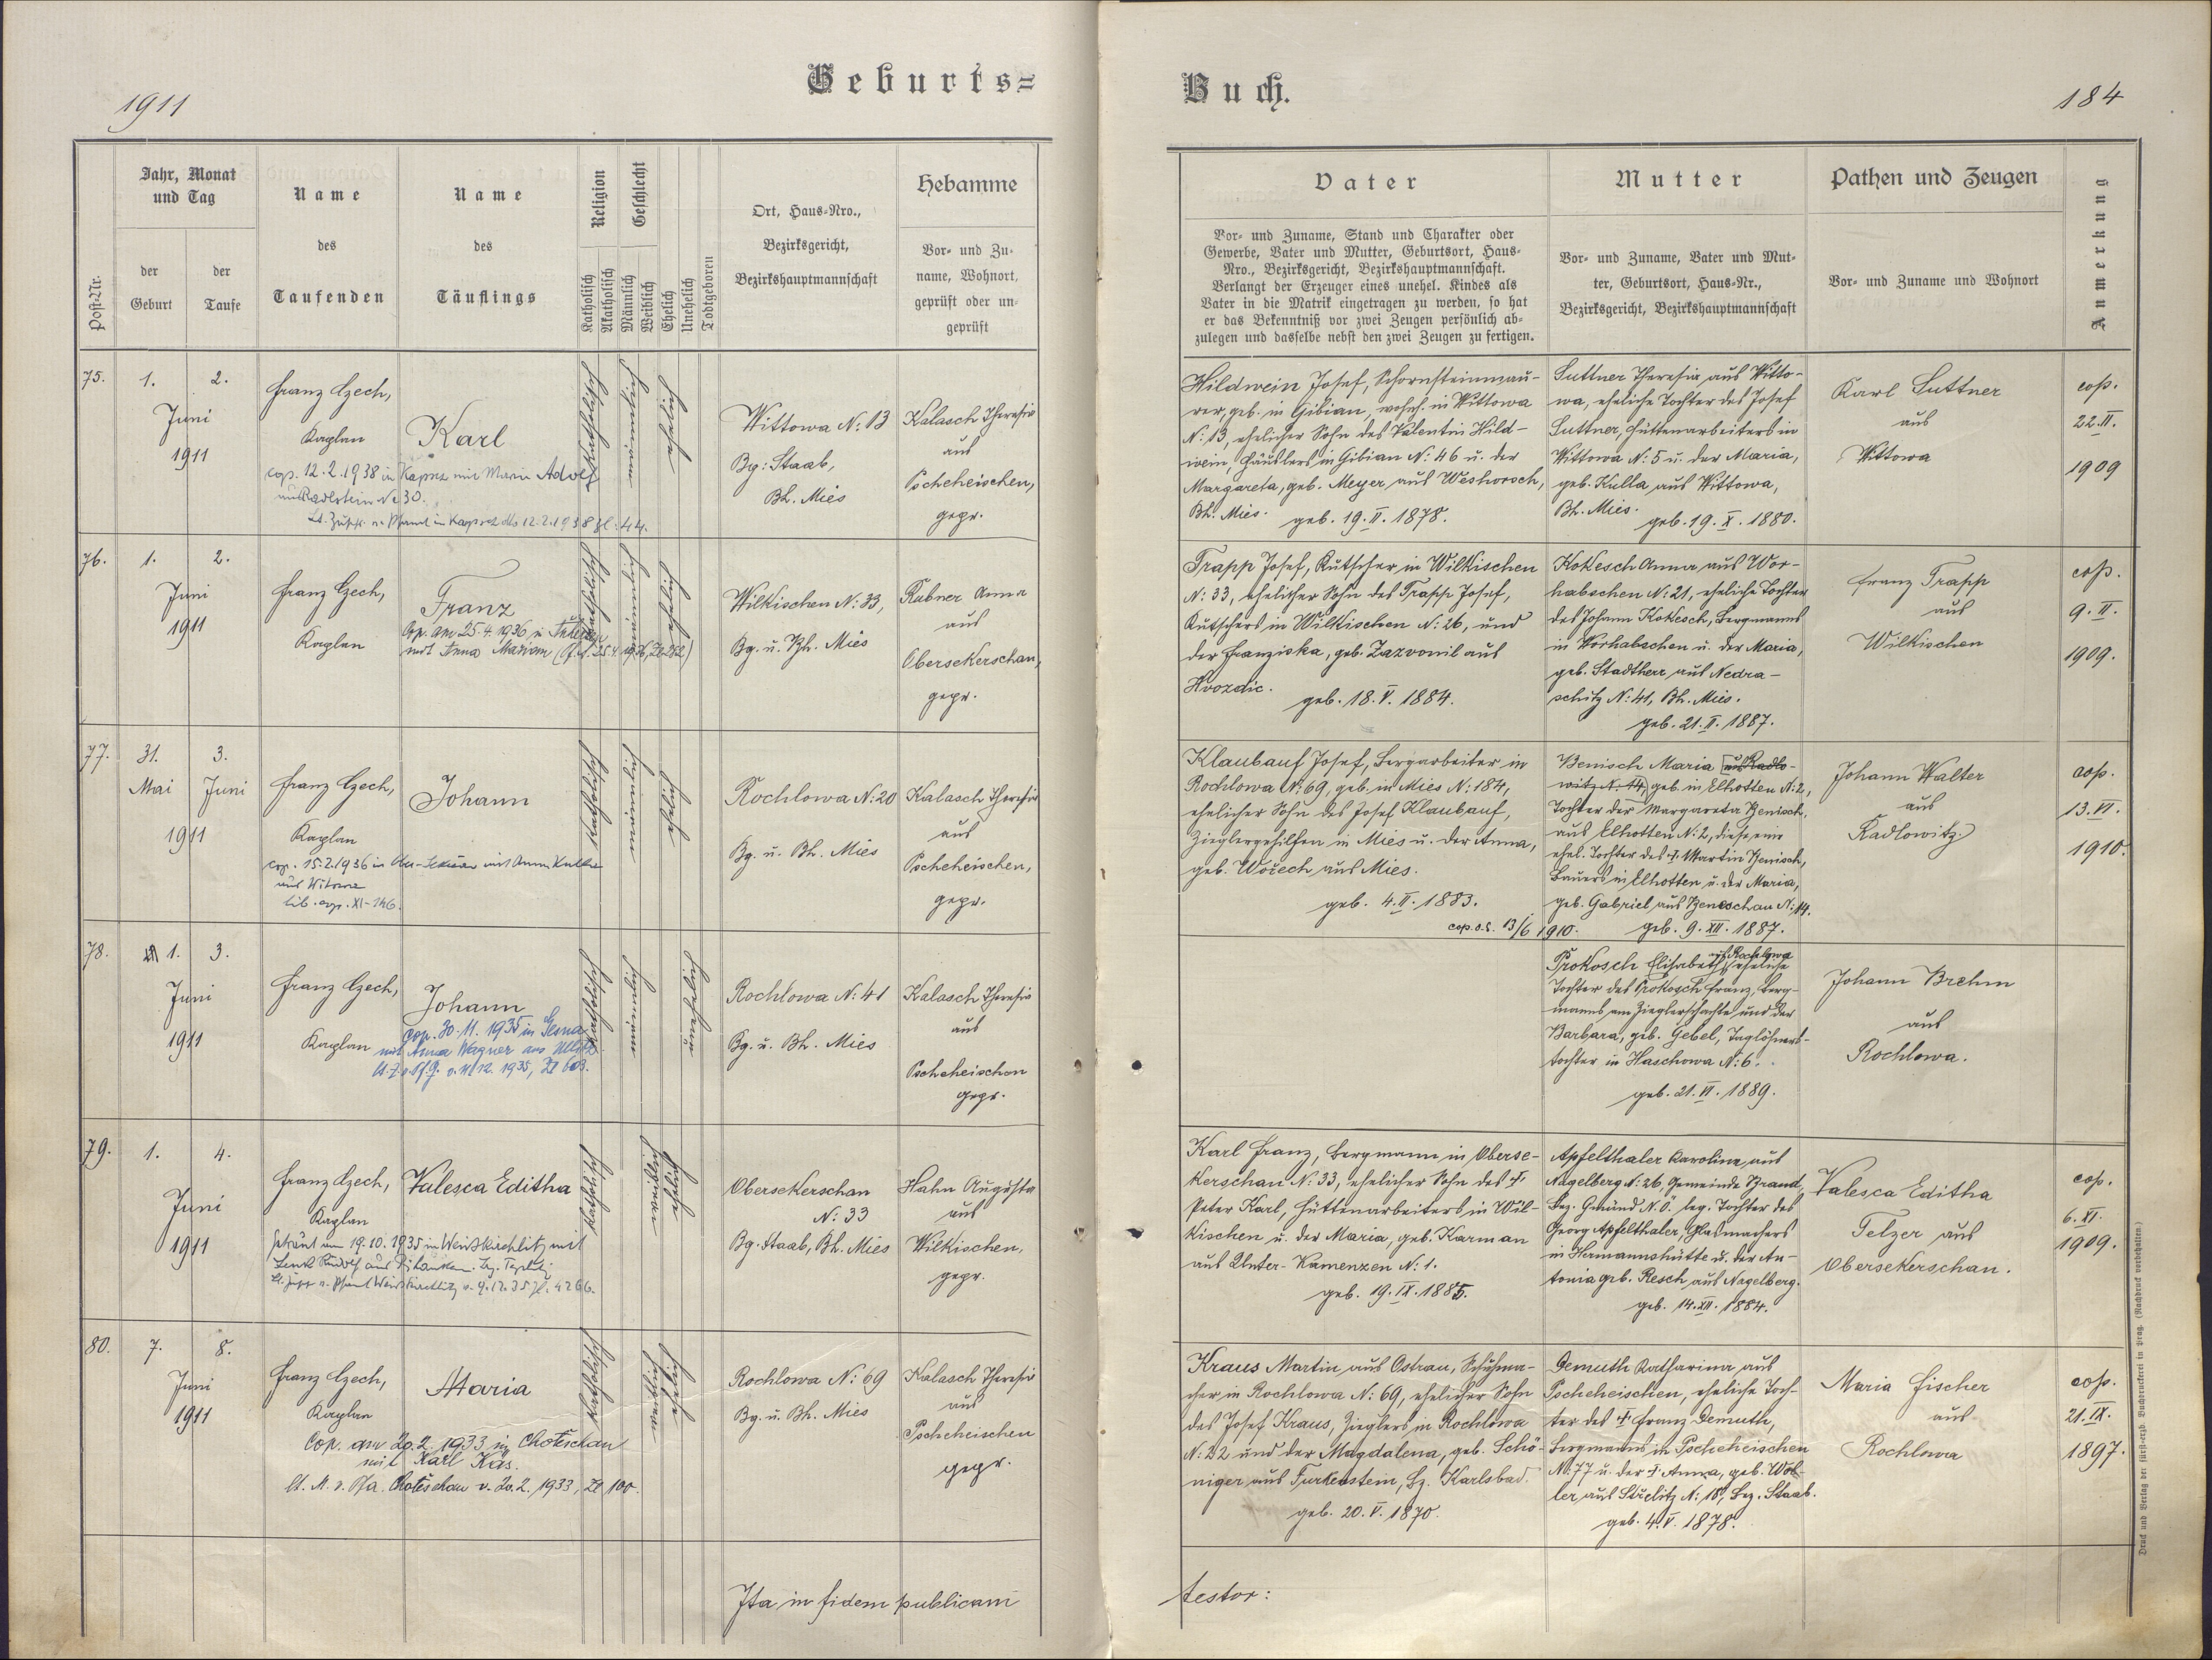 1911
Geburts=
Buch.
184
Post-Nr.
Jahr, Monat
und Tag
der
Geburt
der
Taufe
Name
des
Taufenden
Name
des
Täuflings
Religion
Katholisch
Akatholisch
Geschlecht
Männlich
Weiblich
Ehelich
Unehelich
Todtgeboren
Ort, Haus-Nro.,
Bezirksgericht,
Bezirkshauptmannschaft
Hebamme
Vor- und Zu-
name, Wohnort,
geprüft oder un-
geprüft
Vater
Vor- und Zuname, Stand und Charakter oder
Gewerbe, Vater und Mutter, Geburtsort, Haus-
Nro., Bezirksgericht, Bezirkshauptmannschaft.
Verlangt der Erzeuger eines unehel. Kindes als
Vater in die Matrik eingetragen zu werden, so hat
er das Bekenntniß vor zwei Zeugen persönlich ab-
zulegen und dasselbe nebst den zwei Zeugen zu fertigen.
Mutter
Vor- und Zuname, Vater und Mut-
ter, Geburtsort, Haus-Nr.,
Bezirksgericht, Bezirkshauptmannschaft
Pathen und Zeugen
Vor- und Zuname und Wohnort
Anmerkung
75.
1.
2.
Juni
1911
Franz Czech,
Kaplan
Karl
cop. 12.2.1938 in Kapsch mit Maria Adolf
aus Radlstein No 30.
12.2.1938 Zl: 44.
katholisch
ehelich
Wittowa N: 13
Bg: Staab,
Bh. Mies
Kalasch Theresia
aus
Pscheheischen,
gepr.
Hildwein Josef, Schornsteinmau-
rer, geb. in Gibian, wohnh. in Wittowa
N: 13, ehelicher Sohn des Valentin Hild-
wein, Häuslers in Gibian N: 46 u. der
Margareta, geb. Meyer aus Weshorsch,
Bh. Mies. geb. 19. II. 1878.
Suttner Theresia aus Witto-
wa, eheliche Tochter des Josef
Suttner, Hüttenarbeiters in
Wittowa N: 5 u. der Maria,
geb. Kulla aus Wittowa,
Bh. Mies.
geb. 19. X. 1880.
Karl Suttner
aus
Wittowa
cop.
22. II.
1909
76.
1.
2.
Juni
1911
Franz Czech,
Kaplan
Franz
Cop. am 25.4.1936 in
mit Anna Mariam
katholisch
ehelich
Wilkischen N: 33,
Bg. u. Bh. Mies
Rubner Anna
aus
Obersekerschan,
gepr.
Trapp Josef, Kutscher in Wilkischen
N: 33, ehelicher Sohn des Trapp Josef,
Kutschers in Wilkischen N: 26, und
der Franziska, geb. Zazvonil aus
Hvozdic.
geb. 18. V. 1884.
Kokesch Anna aus Wor-
habschen N: 21, eheliche Tochter
des Johann Kokesch, Bergmanns
in Worhabschen u. der Maria,
geb. Stadtherr aus Nedra-
schitz N: 41, Bh. Mies.
geb. 21. II. 1887.
Franz Trapp
aus
Wilkischen
cop.
9. II.
1909.
77.
31.
3.
Mai
Juni
1911
Franz Czech,
Kaplan
Johann
cop. 15.2.1936 in Ober-Sekeran mit Anna Kulla
aus Witowa
lib. cop. XI-146.
katholisch
ehelich
Rochlowa N: 20
Bg. u. Bh. Mies
Kalasch Theresia
aus
Pscheheischen,
gepr.
Klaubauf Josef, Bergarbeiter in
Rochlowa N: 69, geb. in Mies N: 184,
ehelicher Sohn des Josef Klaubauf,
Zieglergehilfen in Mies u. der Anna,
geb. Wožech aus Mies.
geb. 4. II. 1883.
cop. o.S. 13/6 1910.
Benisch Maria aus Radlo-
witz N: 14, geb. in Elhotten N: 2,
Tochter der Margareta Benisch,
aus Elhotten N: 2, diese eine
ehel. Tochter des † Martin Benisch,
Bauers in Elhotten u. der Maria,
geb. Gabriel aus Beneschau N: 14.
geb. 9. XII. 1887.
Johann Walter
aus
Radlowitz
cop.
13. VI.
1910.
78.
1.
3.
Juni
1911
Franz Czech,
Kaplan
Johann
Cop. 30.11.1935 in Gesna
mit Anna Wagner aus Ullitz
1935, Zl 603.
katholisch
unehelich
Rochlowa N: 41
Bg. u. Bh. Mies
Kalasch Theresia
aus
Pscheheischen
gepr.
Prokosch Elisabeth, aus Rochlowa eheliche
Tochter des Prokosch Franz, Berg-
manns am Zieglerschachte und der
Barbara, geb. Gebel, Taglöhners-
tochter in Haschowa N: 6.
geb. 21. VI. 1889.
Johann Brehm
aus
Rochlowa.
79.
1.
4.
Juni
1911
Franz Czech,
Kaplan
Valesca Editha
Getraut am 19.10.1935 in Weißkirchlitz mit
Lenk Rudolf aus
Lt. Zuschr. v. Pfarramt Weißkirchlitz v. 9.12.35 Zl: 4266.
katholisch
ehelich
Obersekerschan
N: 33
Bg. Staab, Bh. Mies
Hahn Augusta
aus
Wilkischen,
gepr.
Karl Franz, Bergmann in Oberse-
kerschan N: 33, ehelicher Sohn des †
Peter Karl, Hüttenarbeiters in Wil-
kischen u. der Maria, geb. Karman
aus Unter-Kamenzen N: 1.
geb. 19. IX. 1885.
Apfelthaler Karolina aus
Nagelberg N: 26, Gemeinde Brand,
Bez. Gmünd N. Ö. leg. Tochter des
Georg Apfelthaler, Glasmachers
in Hermannshütte u. der An-
tonia geb. Resch aus Nagelberg.
geb. 14. XII. 1884.
Valesca Editha
Telzer aus
Obersekerschan.
cop.
6. XI.
1909.
80.
7.
8.
Juni
1911
Franz Czech,
Kaplan
Maria
Cop. am 20.2.1933 in Chotieschau
mit Karl Käs.
lt. M. v. Pfa. Chotěschau v. 20.2.1933, Zl 100.
katholisch
ehelich
Rochlowa N: 69
Bg. u. Bh. Mies
Kalasch Theresia
aus
Pscheheischen
gepr.
Kraus Martin aus Ostrau, Schuhma-
cher in Rochlowa N: 69, ehelicher Sohn
des Josef Kraus, Zieglers in Rochlowa
N: 22 und der Magdalena, geb. Schö-
niger aus Funkenstein, Bz. Karlsbad.
geb. 20. V. 1870.
Demuth Katharina aus
Pscheheischen, eheliche Toch-
ter des † Franz Demuth,
Bergmanns in Pscheheischen
No: 77 u. der † Anna, geb. Wöl-
ler aus Střelitz N: 18, Bez. Staab.
geb. 4. V. 1878.
Maria Fischer
aus
Rochlowa
cop.
21. IX.
1897.
Ita in fidem publicam
testor:
Druck und Verlag der fürst-erzb. Buchdruckerei in Prag. (Nachdruck vorbehalten.)